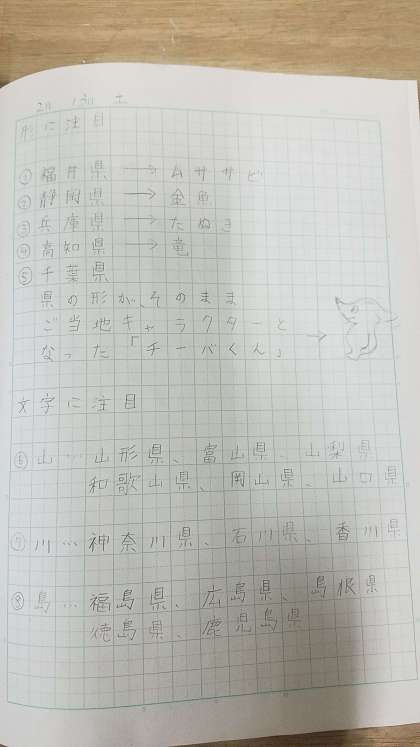 2月 13日 土
形に注目
① 福井県 → ムササビ
② 静岡県 → 金魚
③ 兵庫県 → たぬき
④ 高知県 → 竜
⑤ 千葉県
県の形が、そのまま
ご当地キャラクターと
なった「チーバくん」 →
文字に注目
⑥ 山…山形県、富山県、山梨県
和歌山県、岡山県、山口県
⑦ 川…神奈川県、石川県、香川県
⑧ 島…福島県、広島県、島根県
徳島県、鹿児島県